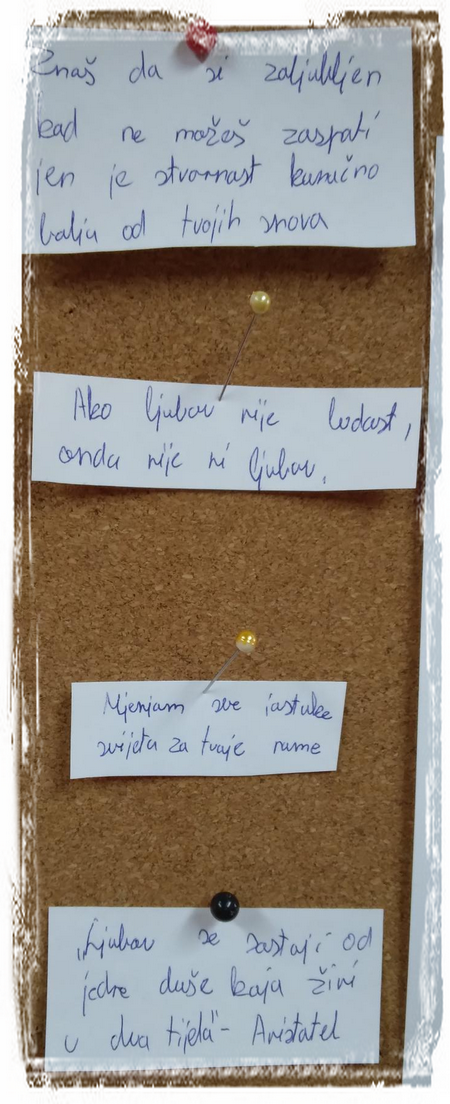 Znaš da si zaljubljen
kad ne možeš zaspati
jer je stvarnost konačno
bolja od tvojih snova
Ako ljubav nije ludost,
onda nije ni ljubav.
Mjenjam sve jastuke
svijeta za tvoje rame
„Ljubav se sastoji od
jedne duše koja živi
u dva tijela“ - Aristotel